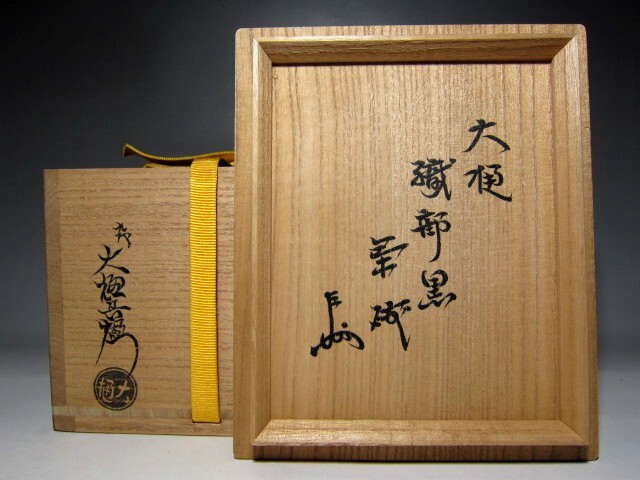 大樋
織部黒
茶碗
九代
大樋長左衛門
大樋